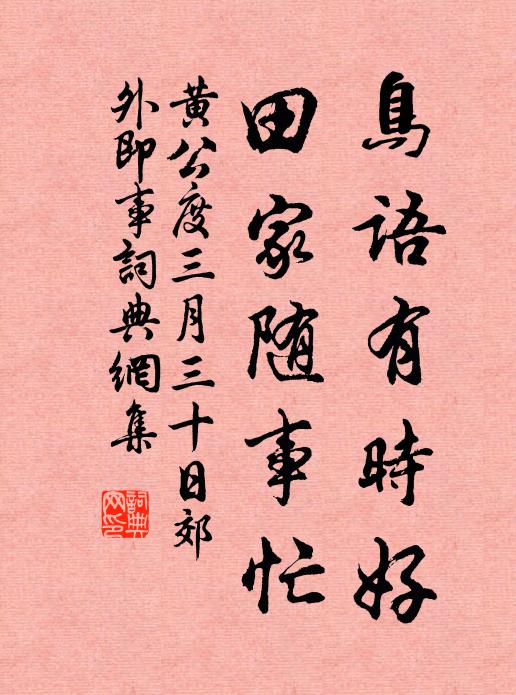 鳥語有時好
田家随事忙
黃公度三月三十日郊
外即事詞典網集
詞典网印